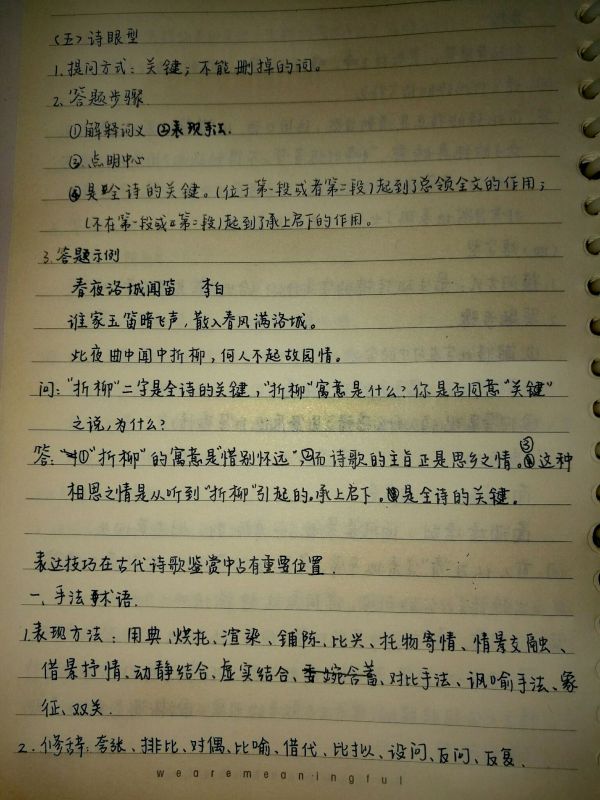 (五)诗眼型
1.提问方式：关键；不能删掉的词。
2.答题步骤
①解释词义 ②表现手法.
③点明中心
④是全诗的关键。(位于第一段或者第二段)起到了总领全文的作用；
(不在第一段或第二段)起到了承上启下的作用。
3.答题示例
春夜洛城闻笛 李白
谁家玉笛暗飞声，散入春风满洛城。
此夜曲中闻中折柳，何人不起故园情。
问："折柳"二字是全诗的关键，"折柳"寓意是什么？你是否同意"关键"
之说，为什么？
答：①"折柳"的寓意是"惜别怀远"，②而诗歌的主旨正是思乡之情。③这种
相思之情是从听到"折柳"引起的。承上启下。④是全诗的关键。
表达技巧在古代诗歌鉴赏中占有重要位置.
一、手法术语.
1.表现方法：用典、烘托、渲染、铺陈、比兴、托物寄情、情景交融、
借景抒情、动静结合、虚实结合、委婉含蓄、对比手法、讽喻手法、象
征、双关.
2.修辞：夸张、排比、对偶、比喻、借代、比拟、设问、反问、反复.
wearemeaningful